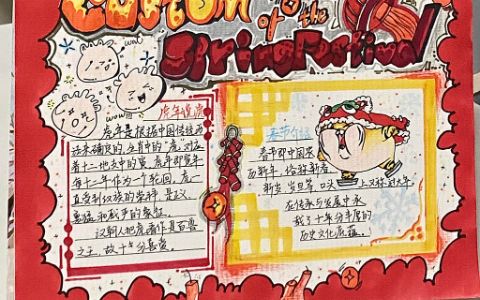 Custom
of the
Spring Festival
wow
wow
虎年说虎
虎年是根据中国传统历
法来确定的,生肖中的"虎"对应
着十二地支中的寅,虎年即寅年
每十二年作为一个轮回,虎一
直受到汉族的崇拜,是正义
勇猛和威严的象征。
汉朝人把虎看作是百兽
之王,故十年分喜爱。
春节介绍
春节即中国农
历新年,俗称新春
新岁,口头上又称过大年
在传承与发展中承
载了十年分丰厚的
历史文化底蕴。